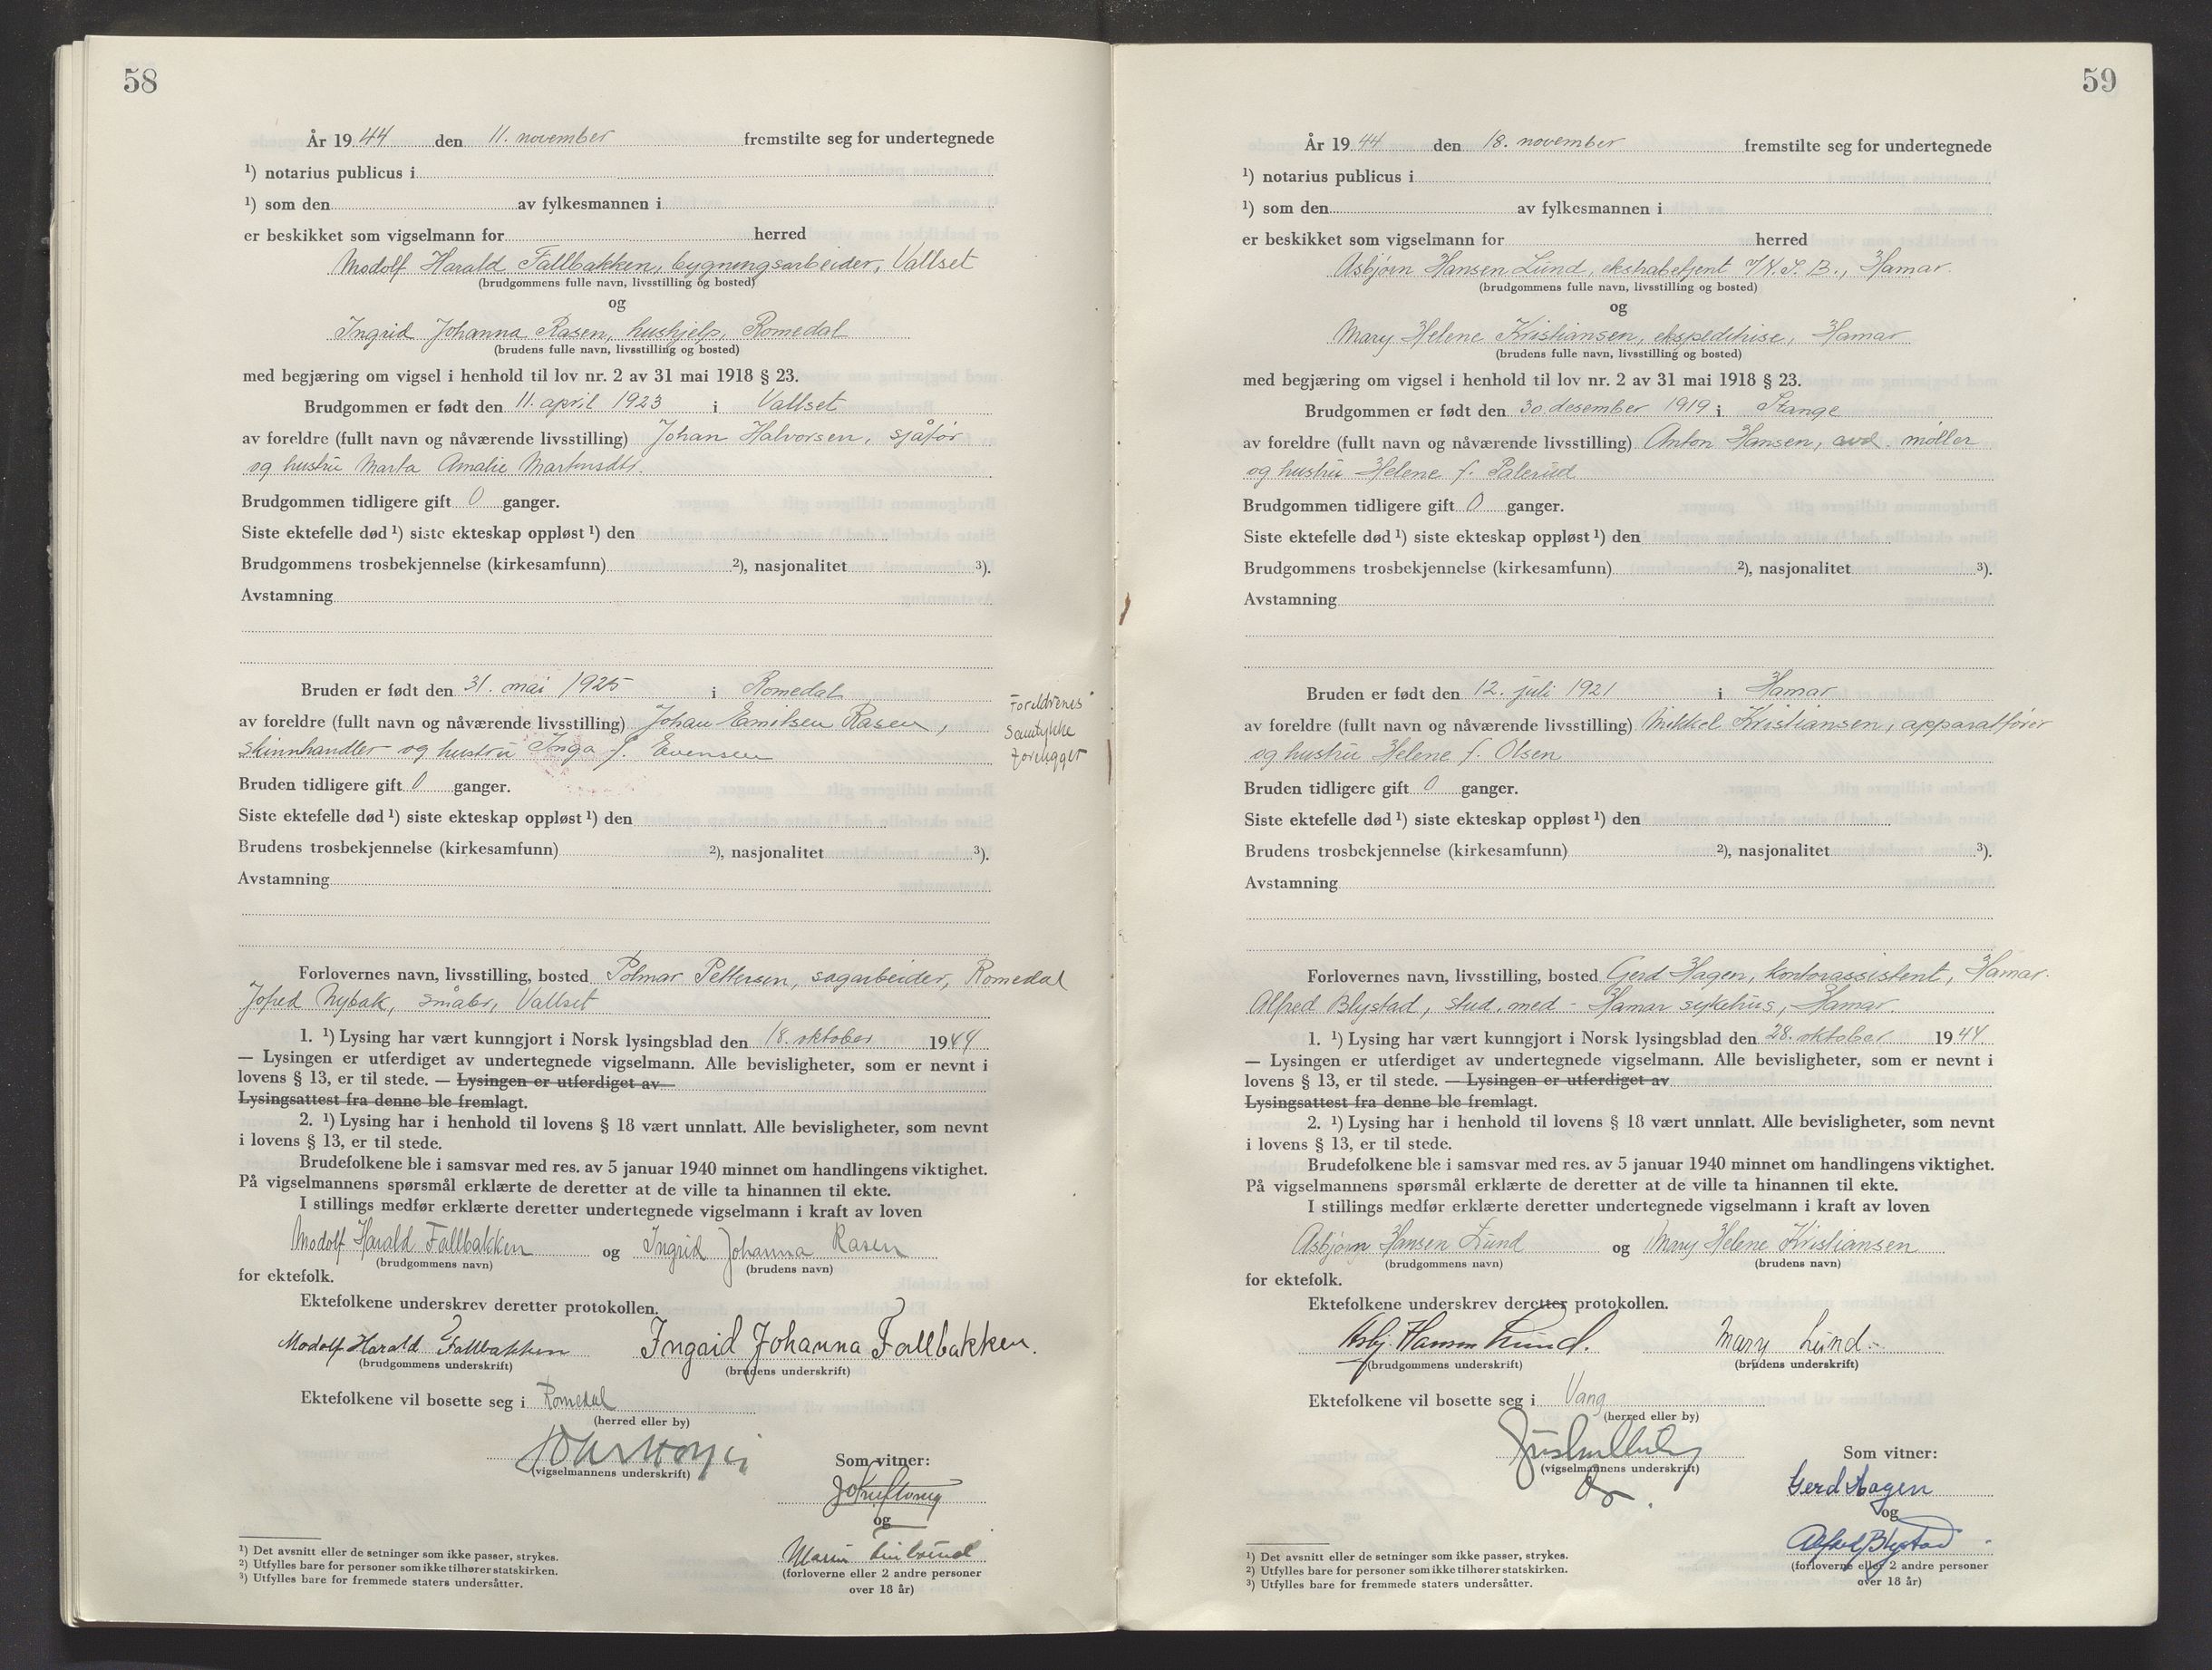 58
År 1944 den 11. november fremstilte seg for undertegnede
¹) notarius publicus i
¹) som den av fylkesmannen i
er beskikket som vigselmann for herred
Modolf Harald Fallbakken, bygningsarbeider, Vallset
(brudgommens fulle navn, livsstilling og bosted)
og
Ingrid Johanna Rasen, hushjelp, Romedal
(brudens fulle navn, livsstilling og bosted)
med begjæring om vigsel i henhold til lov nr. 2 av 31 mai 1918 § 23.
Brudgommen er født den 11. april 1923 i Vallset
av foreldre (fullt navn og nåværende livsstilling) Johan Halvorsen, sjåfør
og hustru Marta Amalie Martinsdtr.
Brudgommen tidligere gift 0 ganger.
Siste ektefelle død ¹) siste ekteskap oppløst ¹) den
Brudgommens trosbekjennelse (kirkesamfunn) ²), nasjonalitet ³).
Avstamning
Bruden er født den 31. mai 1925 i Romedal
av foreldre (fullt navn og nåværende livsstilling) Johan Emilsen Rasen,
skinnhandler og hustru Inga f. Evensen
Foreldrenes
samtykke
foreligger
Bruden tidligere gift 0 ganger.
Siste ektefelle død ¹) siste ekteskap oppløst ¹) den
Brudens trosbekjennelse (kirkesamfunn) ²), nasjonalitet ³).
Avstamning
Forlovernes navn, livsstilling, bosted Polmar Pettersen, sagarbeider, Romedal
Jofred Nybak, småbr, Vallset
1. ¹) Lysing har vært kunngjort i Norsk lysingsblad den 18. oktober 1944
— Lysingen er utferdiget av undertegnede vigselmann. Alle bevisligheter, som er nevnt i
lovens § 13, er til stede. — Lysingen er utferdiget av
Lysingsattest fra denne ble fremlagt.
2. ¹) Lysing har i henhold til lovens § 18 vært unnlatt. Alle bevisligheter, som nevnt
i lovens § 13, er til stede.
Brudefolkene ble i samsvar med res. av 5 januar 1940 minnet om handlingens viktighet.
På vigselmannens spørsmål erklærte de deretter at de ville ta hinannen til ekte.
I stillings medfør erklærte deretter undertegnede vigselmann i kraft av loven
Modolf Harald Fallbakken og Ingrid Johanna Rasen
(brudgommens navn) (brudens navn)
for ektefolk.
Ektefolkene underskrev deretter protokollen.
Modolf Harald Fallbakken Ingrid Johanna Fallbakken.
(brudgommens underskrift) (brudens underskrift)
Ektefolkene vil bosette seg i Romedal
(herred eller by)
(vigselmannens underskrift)
Som vitner:
og
(forloverne eller 2 andre personer
over 18 år)
¹) Det avsnitt eller de setninger som ikke passer, strykes.
²) Utfylles bare for personer som ikke tilhører statskirken.
³) Utfylles bare for fremmede staters undersåtter.
59
År 1944 den 18. november fremstilte seg for undertegnede
¹) notarius publicus i
¹) som den av fylkesmannen i
er beskikket som vigselmann for herred
Asbjørn Hansen Lund, ekstrabetjent v/N.S.B., Hamar.
(brudgommens fulle navn, livsstilling og bosted)
og
Mary Helene Kristiansen, ekspeditrise, Hamar
(brudens fulle navn, livsstilling og bosted)
med begjæring om vigsel i henhold til lov nr. 2 av 31 mai 1918 § 23.
Brudgommen er født den 30. desember 1919 i Stange
av foreldre (fullt navn og nåværende livsstilling) Anton Hansen, avd. møller
og hustru Helene f. Palerud
Brudgommen tidligere gift 0 ganger.
Siste ektefelle død ¹) siste ekteskap oppløst ¹) den
Brudgommens trosbekjennelse (kirkesamfunn) ²), nasjonalitet ³).
Avstamning
Bruden er født den 12. juli 1921 i Hamar
av foreldre (fullt navn og nåværende livsstilling) Mikkel Kristiansen, apparatfører
og hustru Helene f. Olsen
Bruden tidligere gift 0 ganger.
Siste ektefelle død ¹) siste ekteskap oppløst ¹) den
Brudens trosbekjennelse (kirkesamfunn) ²), nasjonalitet ³).
Avstamning
Forlovernes navn, livsstilling, bosted Gerd Hagen, kontorassistent, Hamar.
Alfred Blystad, stud. med - Hamar sykehus, Hamar.
1. ¹) Lysing har vært kunngjort i Norsk lysingsblad den 28. oktober 1944
— Lysingen er utferdiget av undertegnede vigselmann. Alle bevisligheter, som er nevnt i
lovens § 13, er til stede. — Lysingen er utferdiget av
Lysingsattest fra denne ble fremlagt.
2. ¹) Lysing har i henhold til lovens § 18 vært unnlatt. Alle bevisligheter, som nevnt
i lovens § 13, er til stede.
Brudefolkene ble i samsvar med res. av 5 januar 1940 minnet om handlingens viktighet.
På vigselmannens spørsmål erklærte de deretter at de ville ta hinannen til ekte.
I stillings medfør erklærte deretter undertegnede vigselmann i kraft av loven
Asbjørn Hansen Lund og Mary Helene Kristiansen
(brudgommens navn) (brudens navn)
for ektefolk.
Ektefolkene underskrev deretter protokollen.
Asbj. Hansen Lund. Mary Lund
(brudgommens underskrift) (brudens underskrift)
Ektefolkene vil bosette seg i Vang
(herred eller by)
(vigselmannens underskrift)
Som vitner:
Gerd Hagen
og
Alfred Blystad
(forloverne eller 2 andre personer
over 18 år)
¹) Det avsnitt eller de setninger som ikke passer, strykes.
²) Utfylles bare for personer som ikke tilhører statskirken.
³) Utfylles bare for fremmede staters undersåtter.